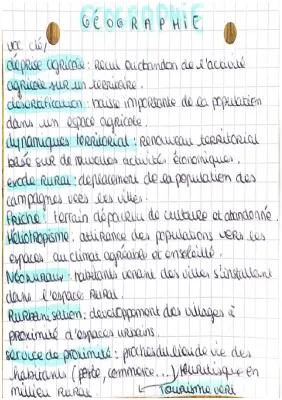 GÉOGRAPHIE
voc clé,
déprise agricole : recul ou abandon de l'activité
agricole sur un territoire.
désertification : baisse importante de la population
dans un espace agricole.
dynamiques territorial : renouveau territorial
basé sur de nouvelles activités économiques.
exode rural : déplacement de la population des
campagnes vers les villes.
Friche : terrain dépourvu de culture et abandonné.
Héliotropisme : attirance des populations vers les
espaces au climat agréable et ensoleillé.
Néoruraux : habitants venant des villes s'installent
dans l'espace rural.
Rurbanisation : développement des villages à
proximité d'espaces urbains.
service de proximité : proches du lieu de vie des
habitants (poste, commerce...) touristique en
milieu rural Tourisme vert